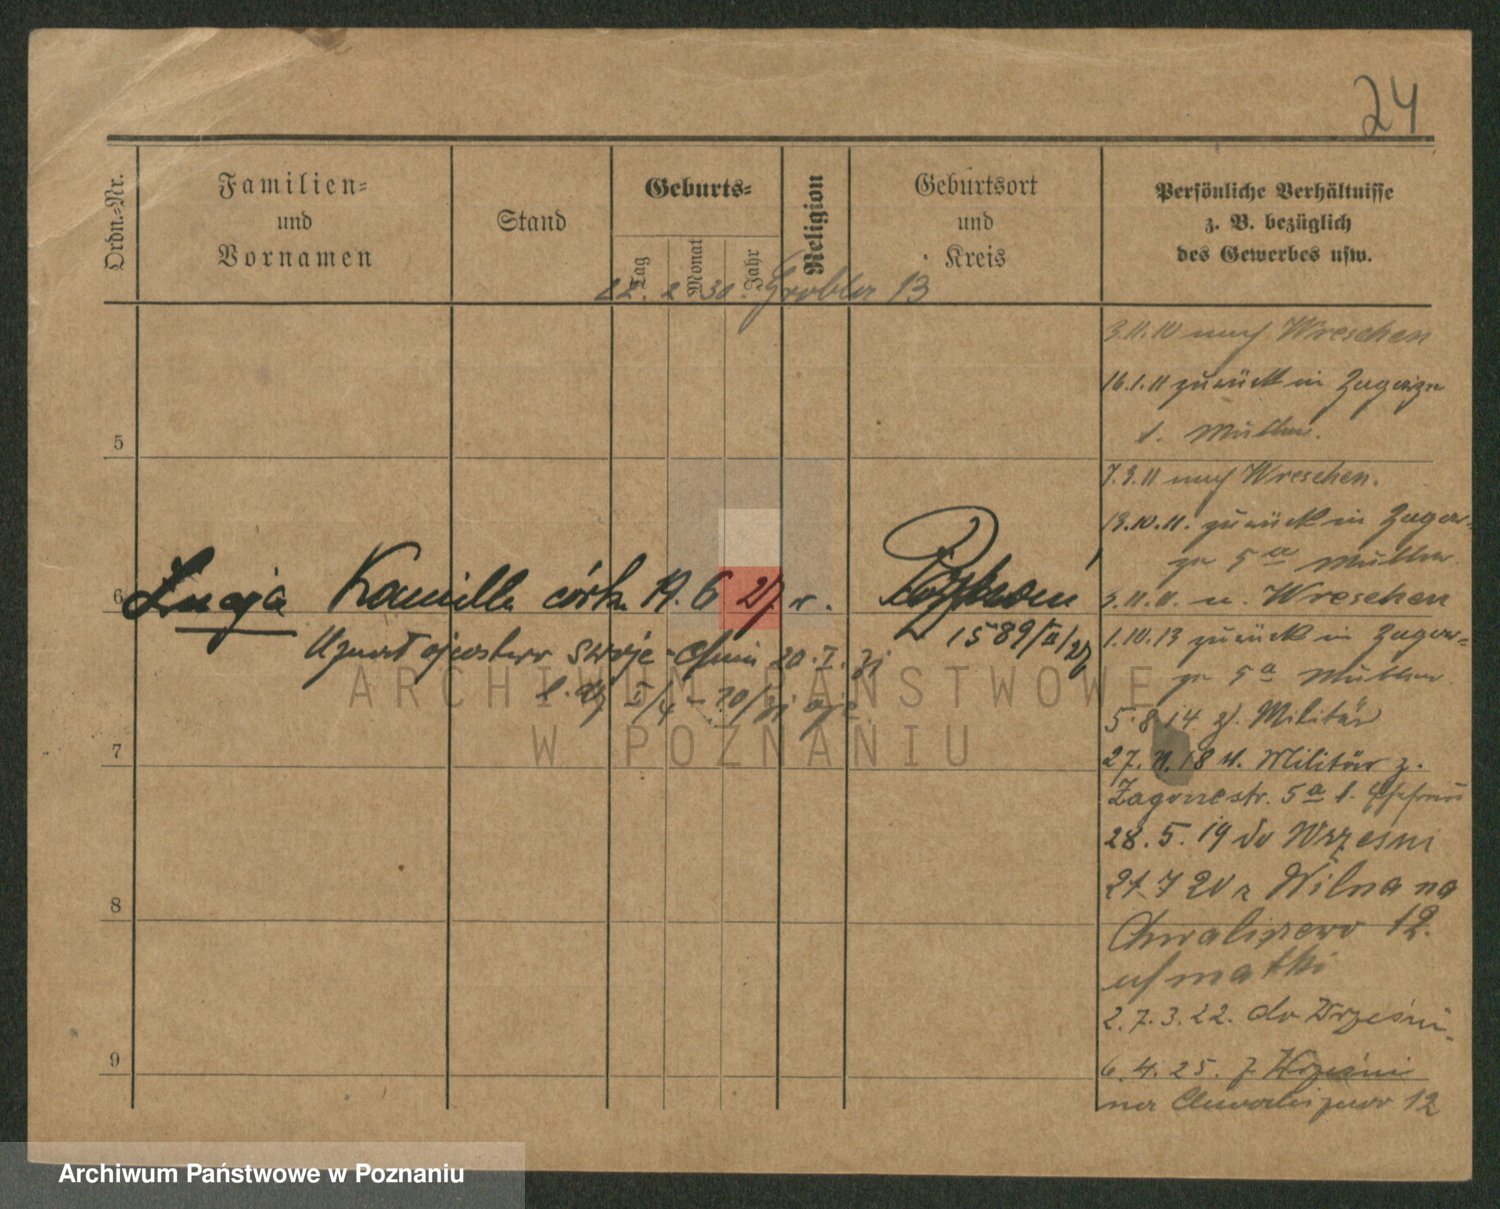 24
Ordn.-Nr.
Familien-
und
Vornamen
Stand
Geburts-
Tag
Monat
Jahr
Religion
Geburtsort
und
Kreis
Persönliche Verhältnisse
z. B. bezüglich
des Gewerbes usw.
22. 2 30. Grobla 13
3.11.10 nach Wreschen
16.1.11 zurück in
Mutter.
5
7.9.11 nach Wreschen.
13.10.11. zurück in Zagor-
5a Mutter
6
Lucja Kamilla córka 19. 6 27 r. Poznań
1589/III/27
3.11.11. n. Wreschen
1.10.13 zurück in Zagor-
5a Mutter
5.8.14 z. Militär
7
27.11.18 v. Militär z.
Zagorzestr. 5a b.
28.5.19 do Wrześni
8
27.7 20 z Wilna na
Chwaliszewo 12.
u/ matki
27.3.22. do Wrześni.
9
6.4.25. z Wrześni
na Chwaliszewo 12
ARCHIWUM PAŃSTWOWE
W POZNANIU
Archiwum Państwowe w Poznaniu